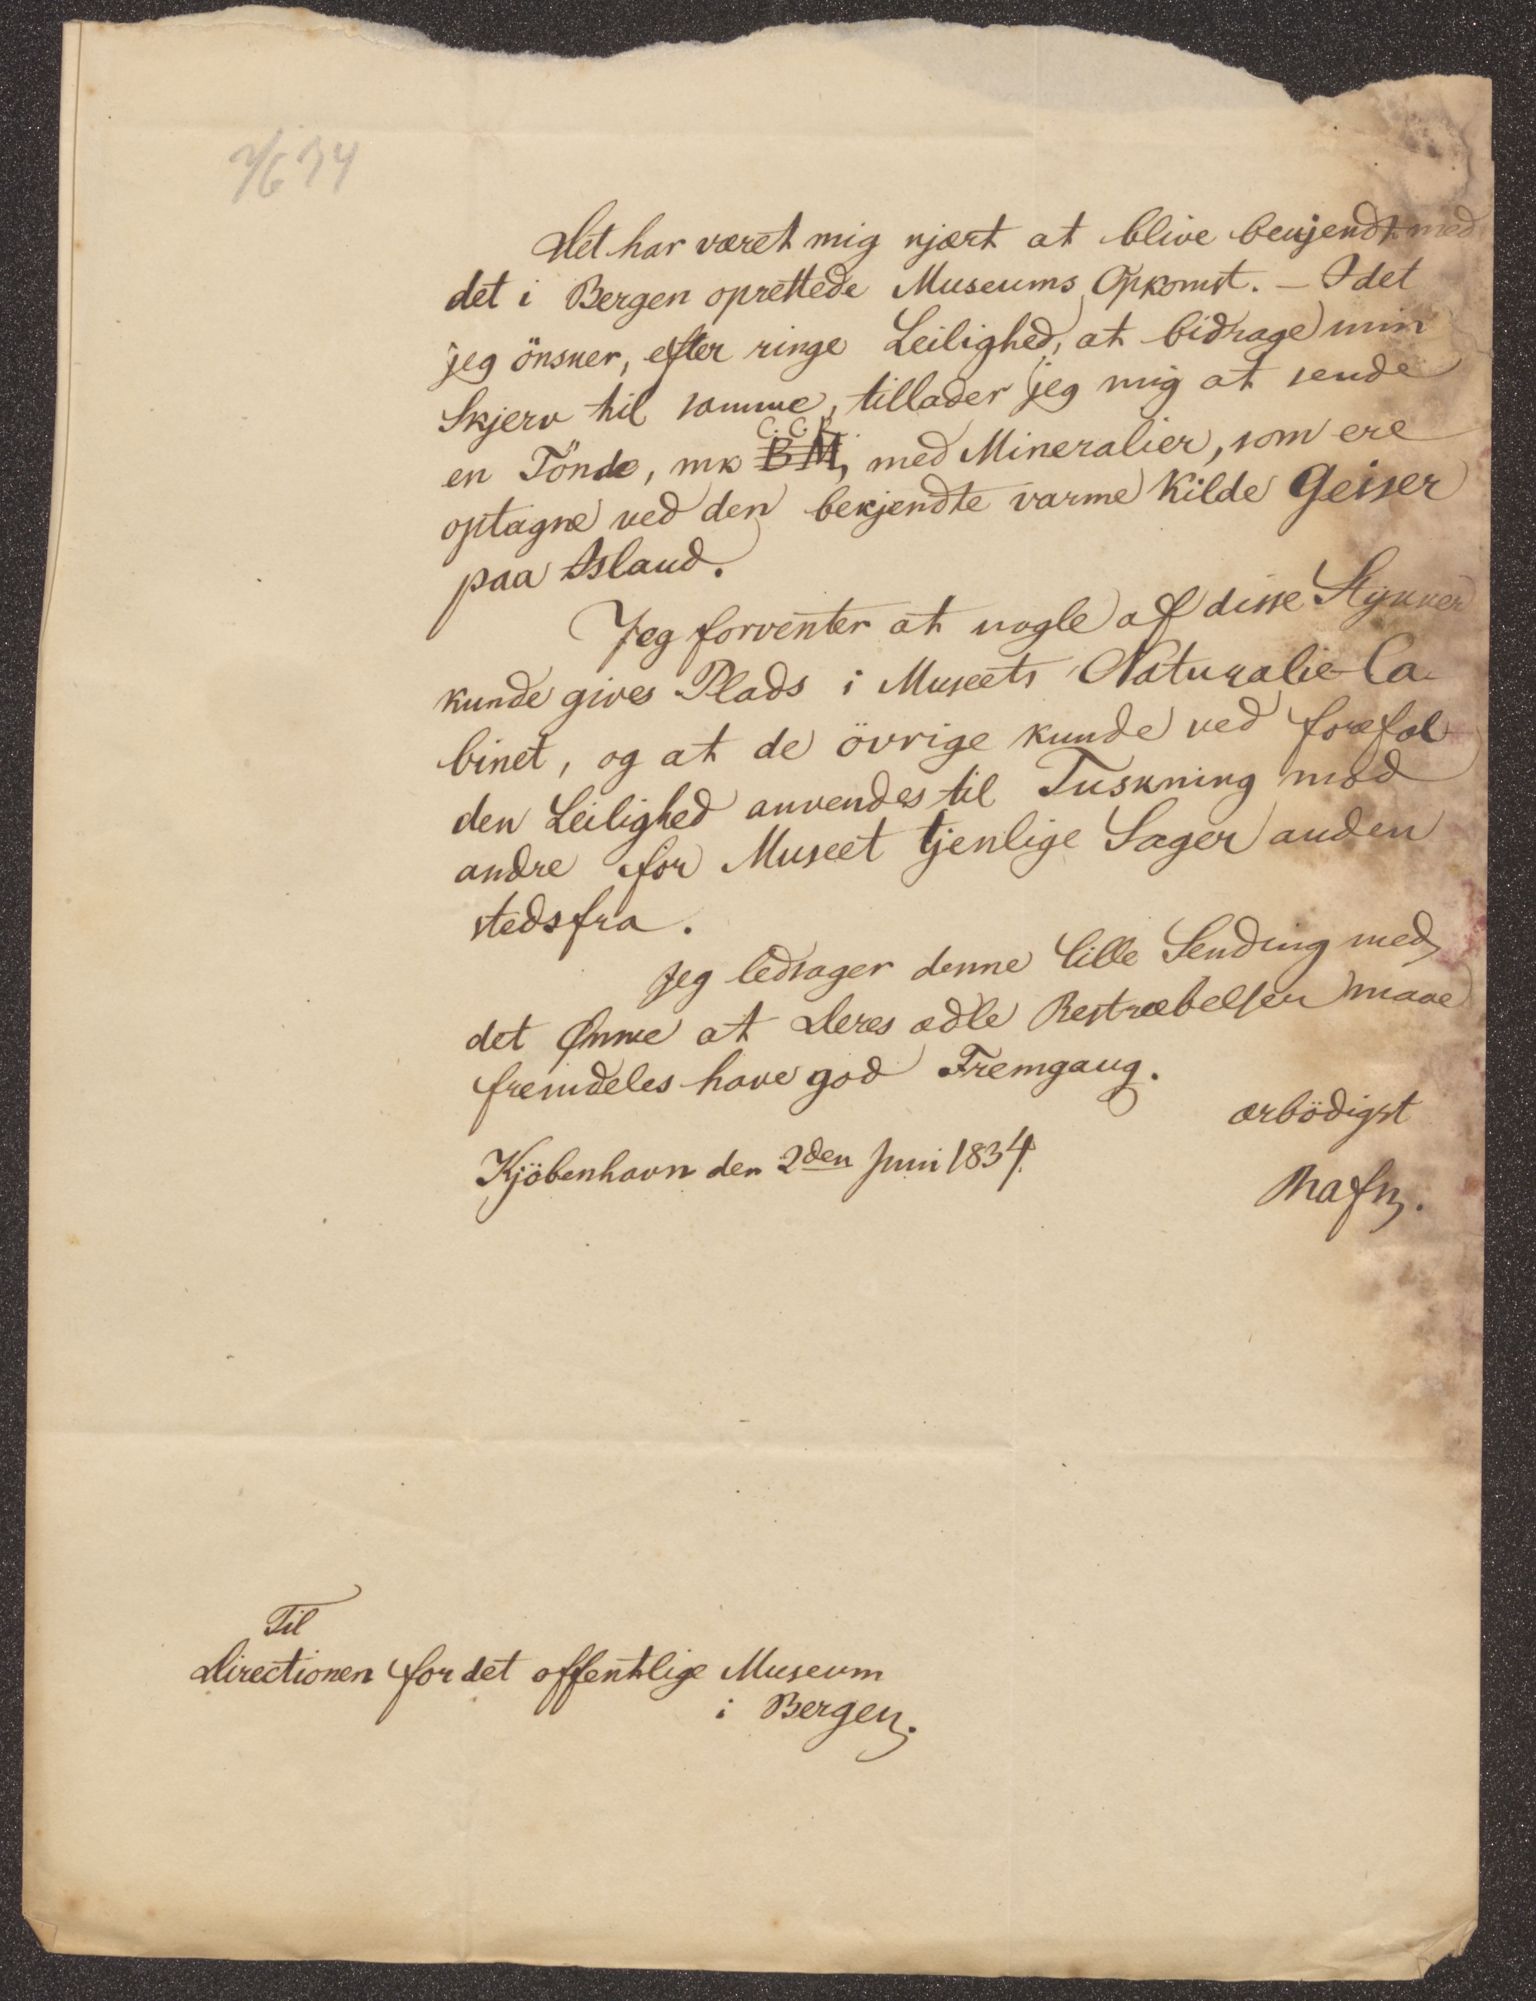 2/6 34
Det har været mig kjært at blive bekjendt med
det i Bergen oprettede Museums Opkomst. – Idet
jeg önsker, efter ringe Leilighed, at bidrage min
Skjerv til samme, tillader jeg mig at sende
C. C. R.
en Tönde, mk B M, med Mineralier, som ere
optagne ved den bekjendte varme Kilde Geiser
paa Island.
Jeg forventer at nogle af disse Stykker
kunde gives Plads i Museets Naturalie-Ca-
binet, og at de övrige kunde ved forefal-
den Leilighed anvendes til Tuskning mod
andre for Museet tjenlige Sager anden
stedsfra.
Jeg ledsager denne lille Sending med
det Ønske at Deres ædle Bestræbelser maae
fremdeles have god Fremgang.
ærbödigst
Kjöbenhavn den 2den Juni 1834.
Rafn.
Til
Directionen for det offentlige Museum
i Bergen.